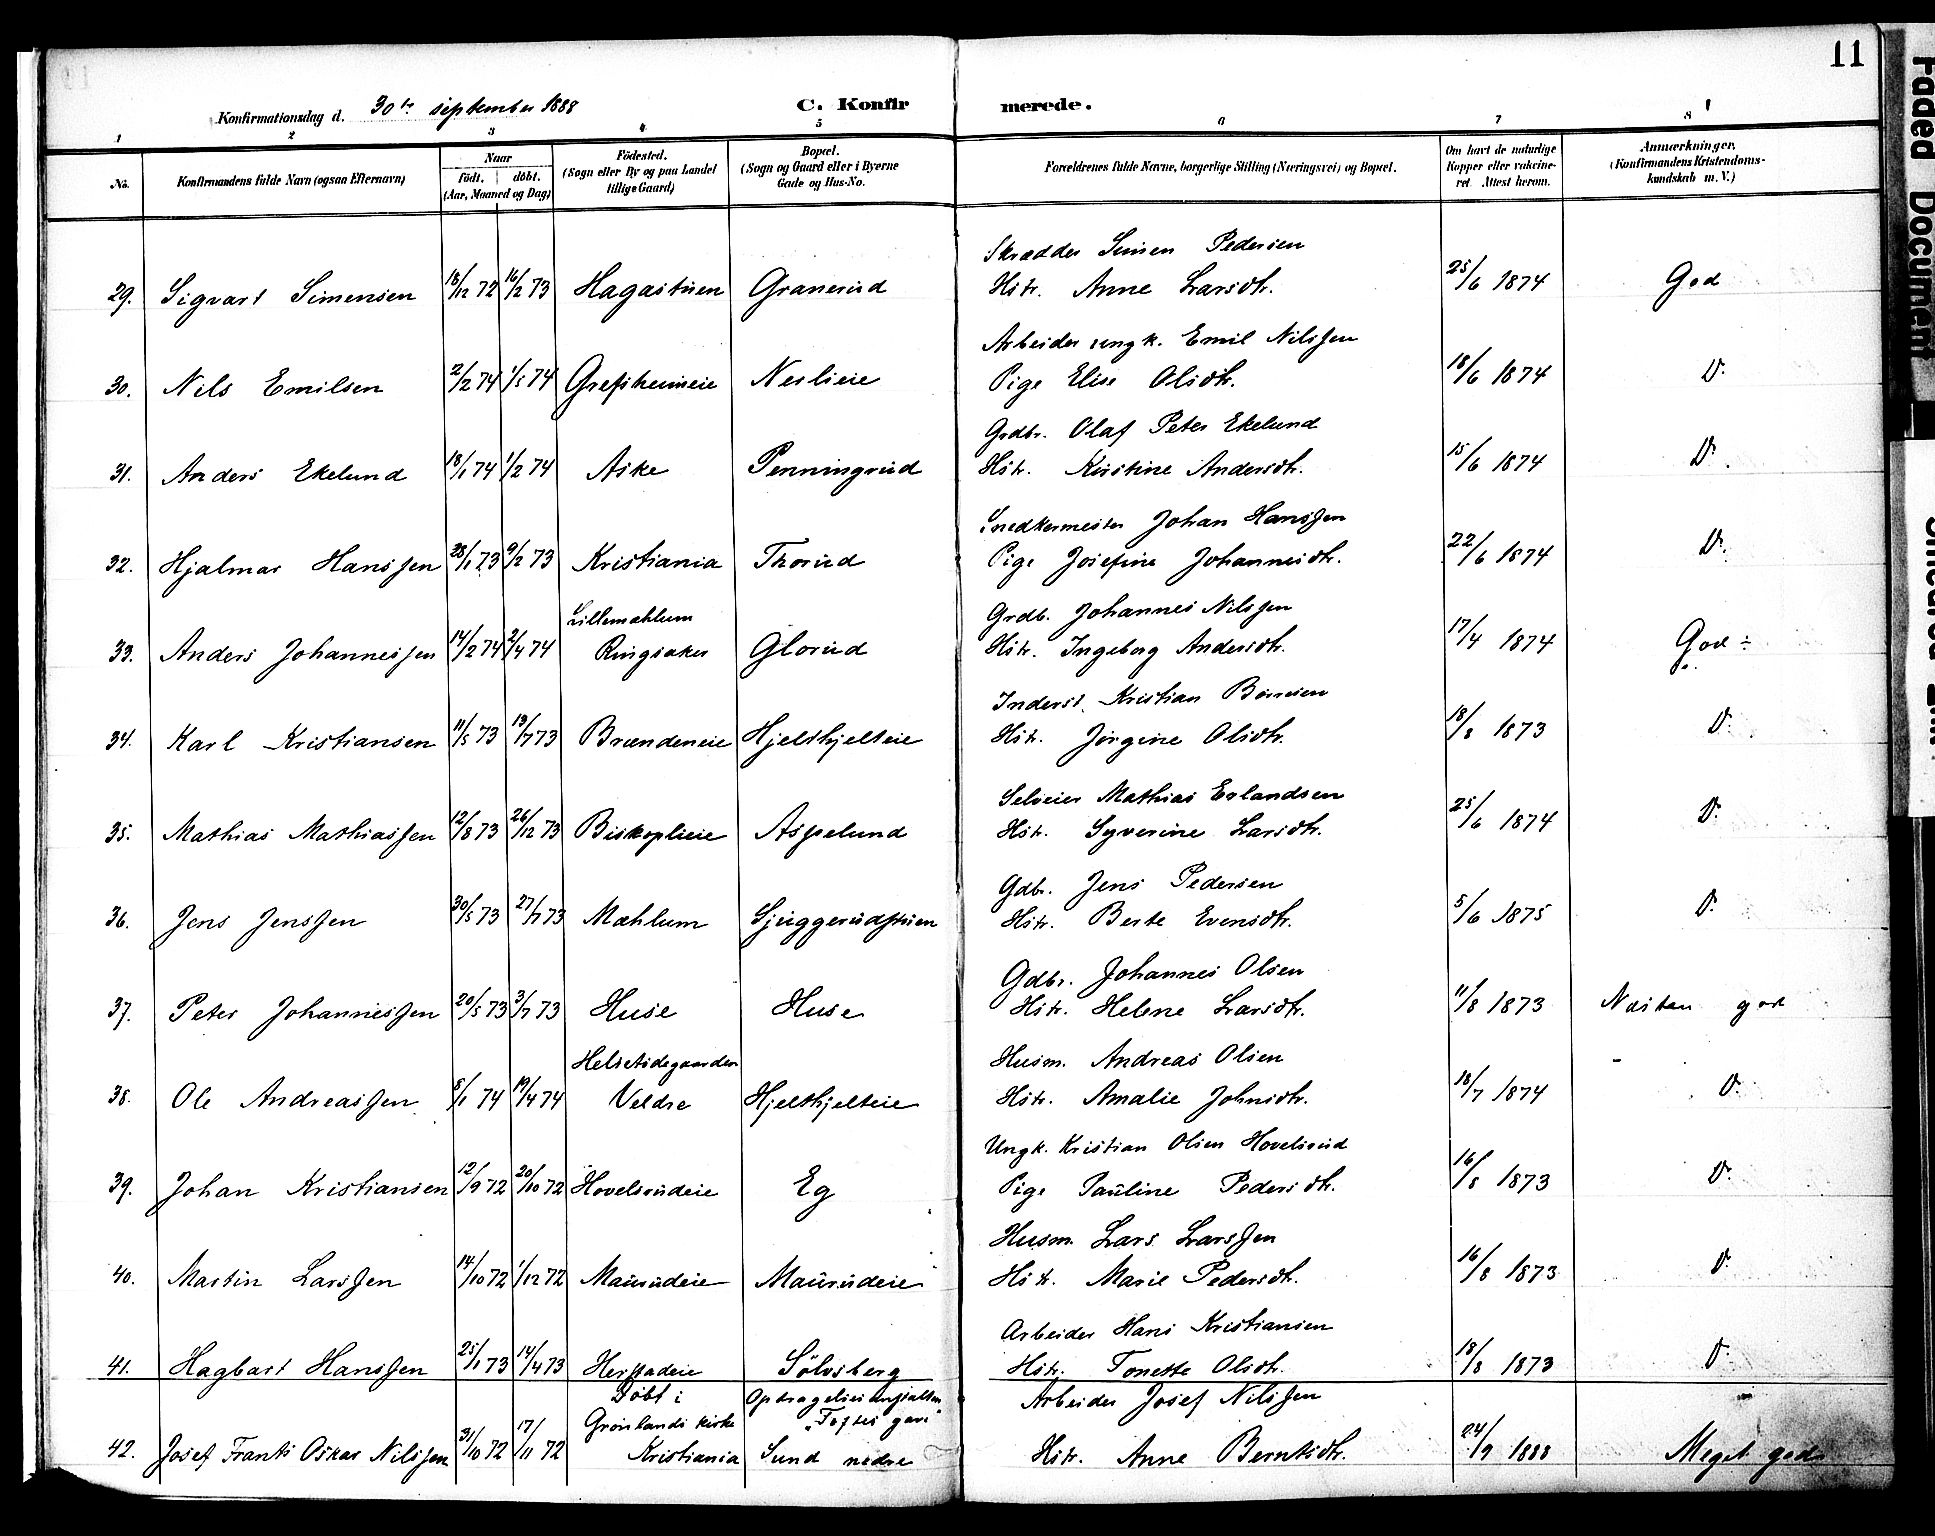 11
Konfirmationsdag d. 30te september 1888 C. Konfirmerede.
1 2 3 4 5 6 7 8
No. Konfirmandens fulde Navn (ogsaa Efternavn) Naar født. døbt. (Aar, Maaned og Dag) Fødested. (Sogn eller By og paa Landet tillige Gaard) Bopæl. (Sogn og Gaard eller i Byerne Gade og Hus-No. Forældrenes fulde Navne, borgerlige Stilling (Næringsvei) og Bopæl. Om havt de naturlige Kopper eller vaccineret. Attest herom. Anmærkninger, (Konfirmandens Kristendomskundskab m. V.)
Skrædder Simen Pedersen
29. Sigvart Simensen 18/12 72 16/2 73 Hagastuen Granerud Hstr. Anne Larsdtr. 25/6 1874 God
Arbeider ungk. Emil Nilssen
30. Nils Emilsen 2/2 74 1/5 74 Grefsheimeie Neslieie Pige Elise Olsdtr. 18/6 1874 D.
Grdbr. Olaf Peter Ekelund
31. Anders Ekelund 18/1 74 1/2 74 Aske Penningrud Hstr. Kirstine Andersdtr. 15/6 1874 D.
Snedkermester Johan Hanssen
32. Hjalmar Hanssen 28/1 73 9/2 73 Kristiania Thorud Pige Josefine Johannesdtr. 22/6 1874 D.
Lillemæhlum Grdb. Johannes Nilssen
33. Anders Johannessen 14/2 74 2/4 74 Ringsaker Glorud Hstr. Ingeborg Andersdtr. 17/4 1874 God ÷
Inderst. Kristian Børresen
34. Karl Kristiansen 11/5 73 13/7 73 Brændeneie Hjelshjelteie Hstr. Jørgine Olsdtr. 18/8 1873 D.
Selveier Mathias Erlandsen
35. Mathias Mathiassen 12/8 73 26/12 73 Biskoplieie Aspelund Hstr. Syverine Larsdtr. 25/6 1874 D.
Gdbr. Jens Pedersen
36. Jens Jenssen 30/5 73 27/7 73 Mæhlum Sjuggerudstuen Hstr. Berte Evensdtr. 5/6 1875 D.
Gdbr. Johannes Olsen
37. Peter Johannessen 20/5 73 3/7 73 Huse Huse Hstr. Helene Larsdtr. 11/8 1873 Næsten god
Helsetødegaarden Husm. Andreas Olsen
38. Ole Andreassen 8/1 74 19/4 74 Veldre Hjelshjelteie Hstr. Amalie Johnsdtr. 18/7 1874 D.
Ungk. Kristian Olsen Hovelsrud
39. Johan Kristiansen 12/9 72 20/10 72 Hovelsrudeie Eg Pige Pauline Pedersdtr. 16/8 1873 D.
Husm. Lars Larssen
40. Martin Larssen 14/10 72 1/12 72 Maurudeie Maurudeie Hstr. Marie Pedersdtr. 16/8 1873 D.
Arbeider Hans Kristiansen
41. Hagbart Hanssen 25/1 73 14/4 73 Herstadeie Sølvsberg Hstr. Tonette Olsdtr. 18/8 1873 D.
Døbt i Opdragelsesanstalten Arbeider Josef Nilssen
Grønlands kirke "Toftes gave"
42. Josef Frants Oskar Nilssen 31/10 72 17/11 72 Kristiania Sund nedre Hstr. Anne Berntsdtr. 24/9 1888 Meget god
Faded Document